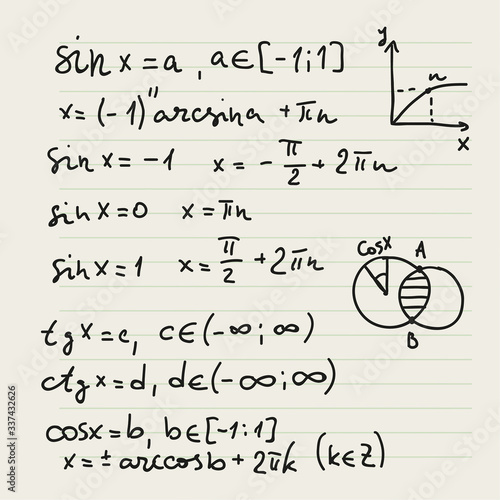 sin x = a , a∈[-1;1]
x = (-1)ⁿ arcsin a + πn
sin x = -1 x = - π/2 + 2πn
sin x = 0 x = πn
sin x = 1 x = π/2 + 2πn
tg x = c, c∈(-∞; ∞)
ctg x = d, d∈(-∞; ∞)
cos x = b, b∈[-1:1]
x = ± arccos b + 2πk (k∈Z)
y
n
x
cos x A
B
Adobe Stock | #337432626